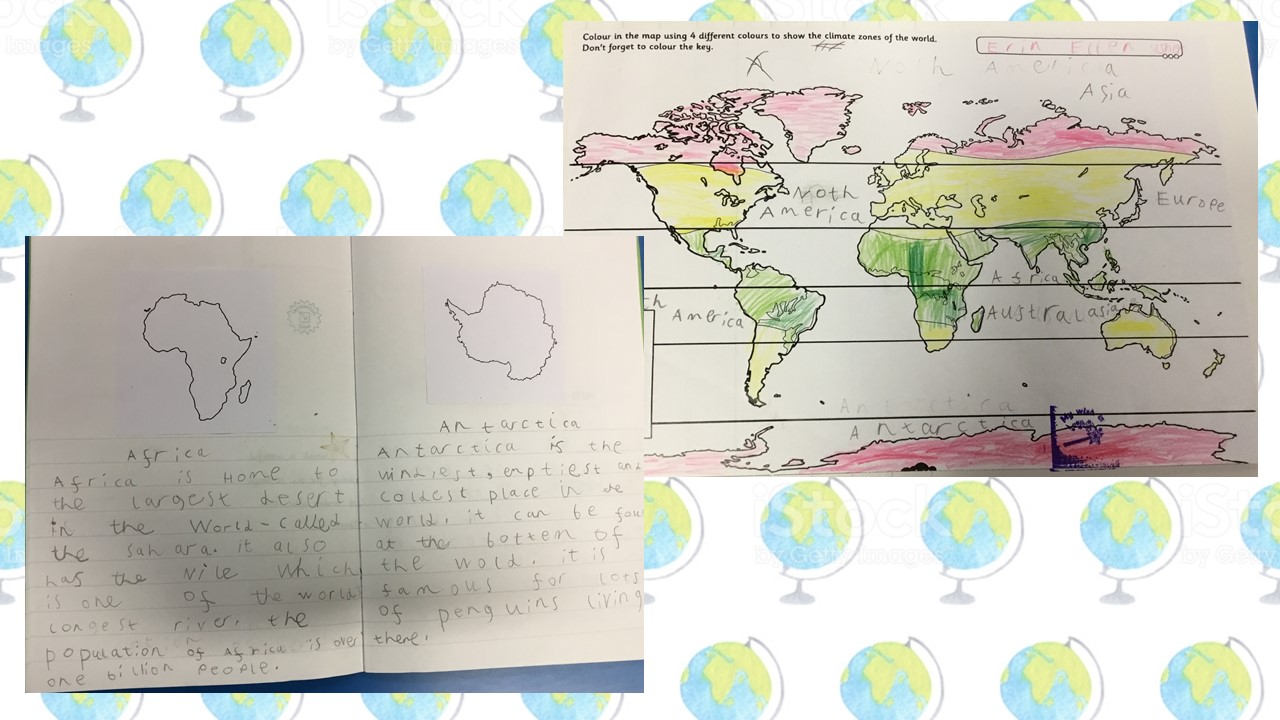 Colour in the map using 4 different colours to show the climate zones of the world.
Don't forget to colour the key.
Erin Ellen
Noth America
Asia
Noth
America
Europe
Africa
America
Australasia
Antarctica
Africa
Africa is Home to
the largest desert
in the World-called
the sahara. it also
has the Nile Which
is one of the world
longest river. the
population of Africa is over
one billion People.
Antarctica
Antarctica is the
windiest, emptiest and
coldest place in the
world. it can be fou
at the bottem of
the wold. it is
famous for lots
of penguins living
there.
iStock
by Getty Images